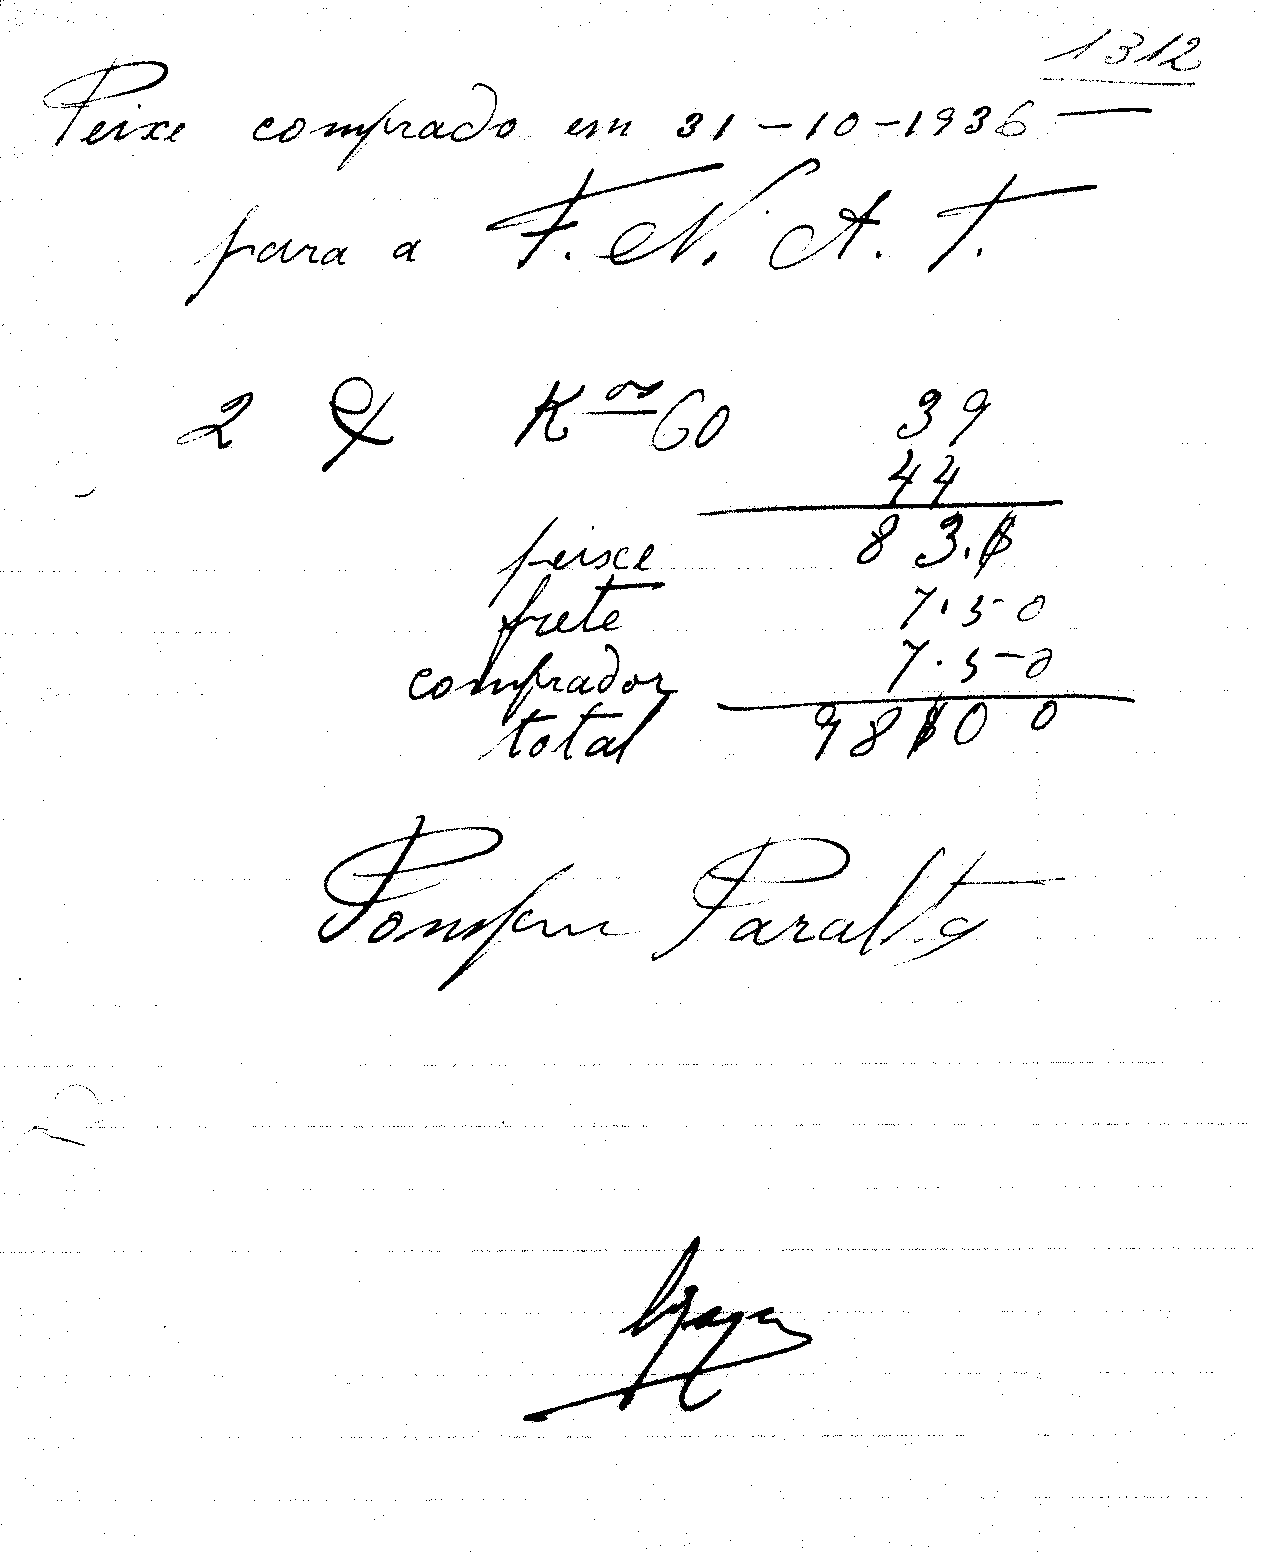 1312
Peixe comprado em 31-10-1936 —
para a F. N. A. T.
2 K.os 60 39
44
peixe 83.$
frete 7.50
comprador 7.50
total 98$00
Pompeu Paralta